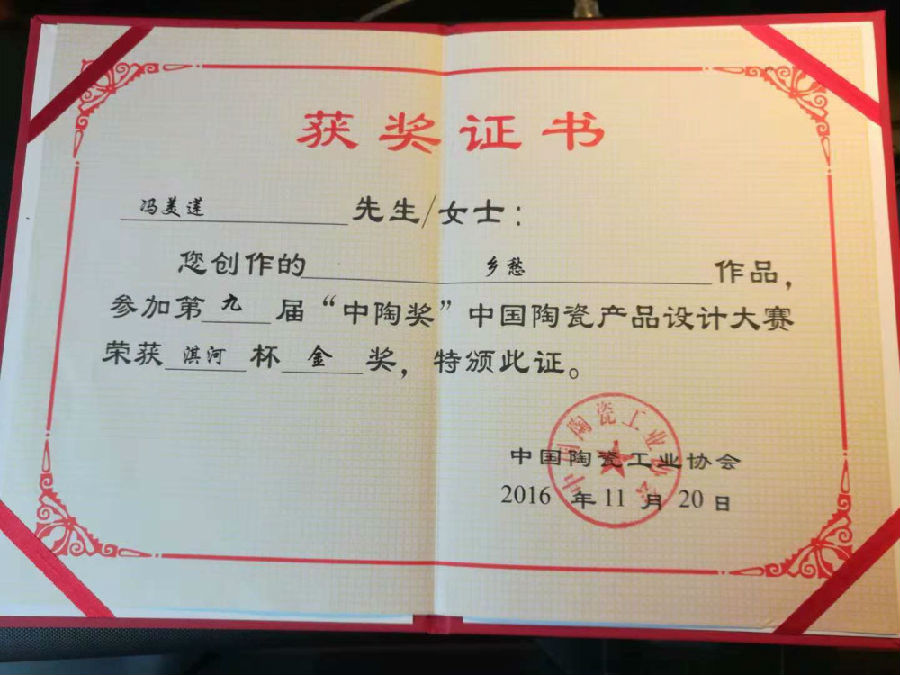 获奖证书
冯美莲 先生/女士：
您创作的 乡愁 作品，
参加第 九 届“中陶奖”中国陶瓷产品设计大赛
荣获 淇河 杯 金 奖，特颁此证。
中国陶瓷工业协会
中国陶瓷工业协会
2016 年 11 月 20 日